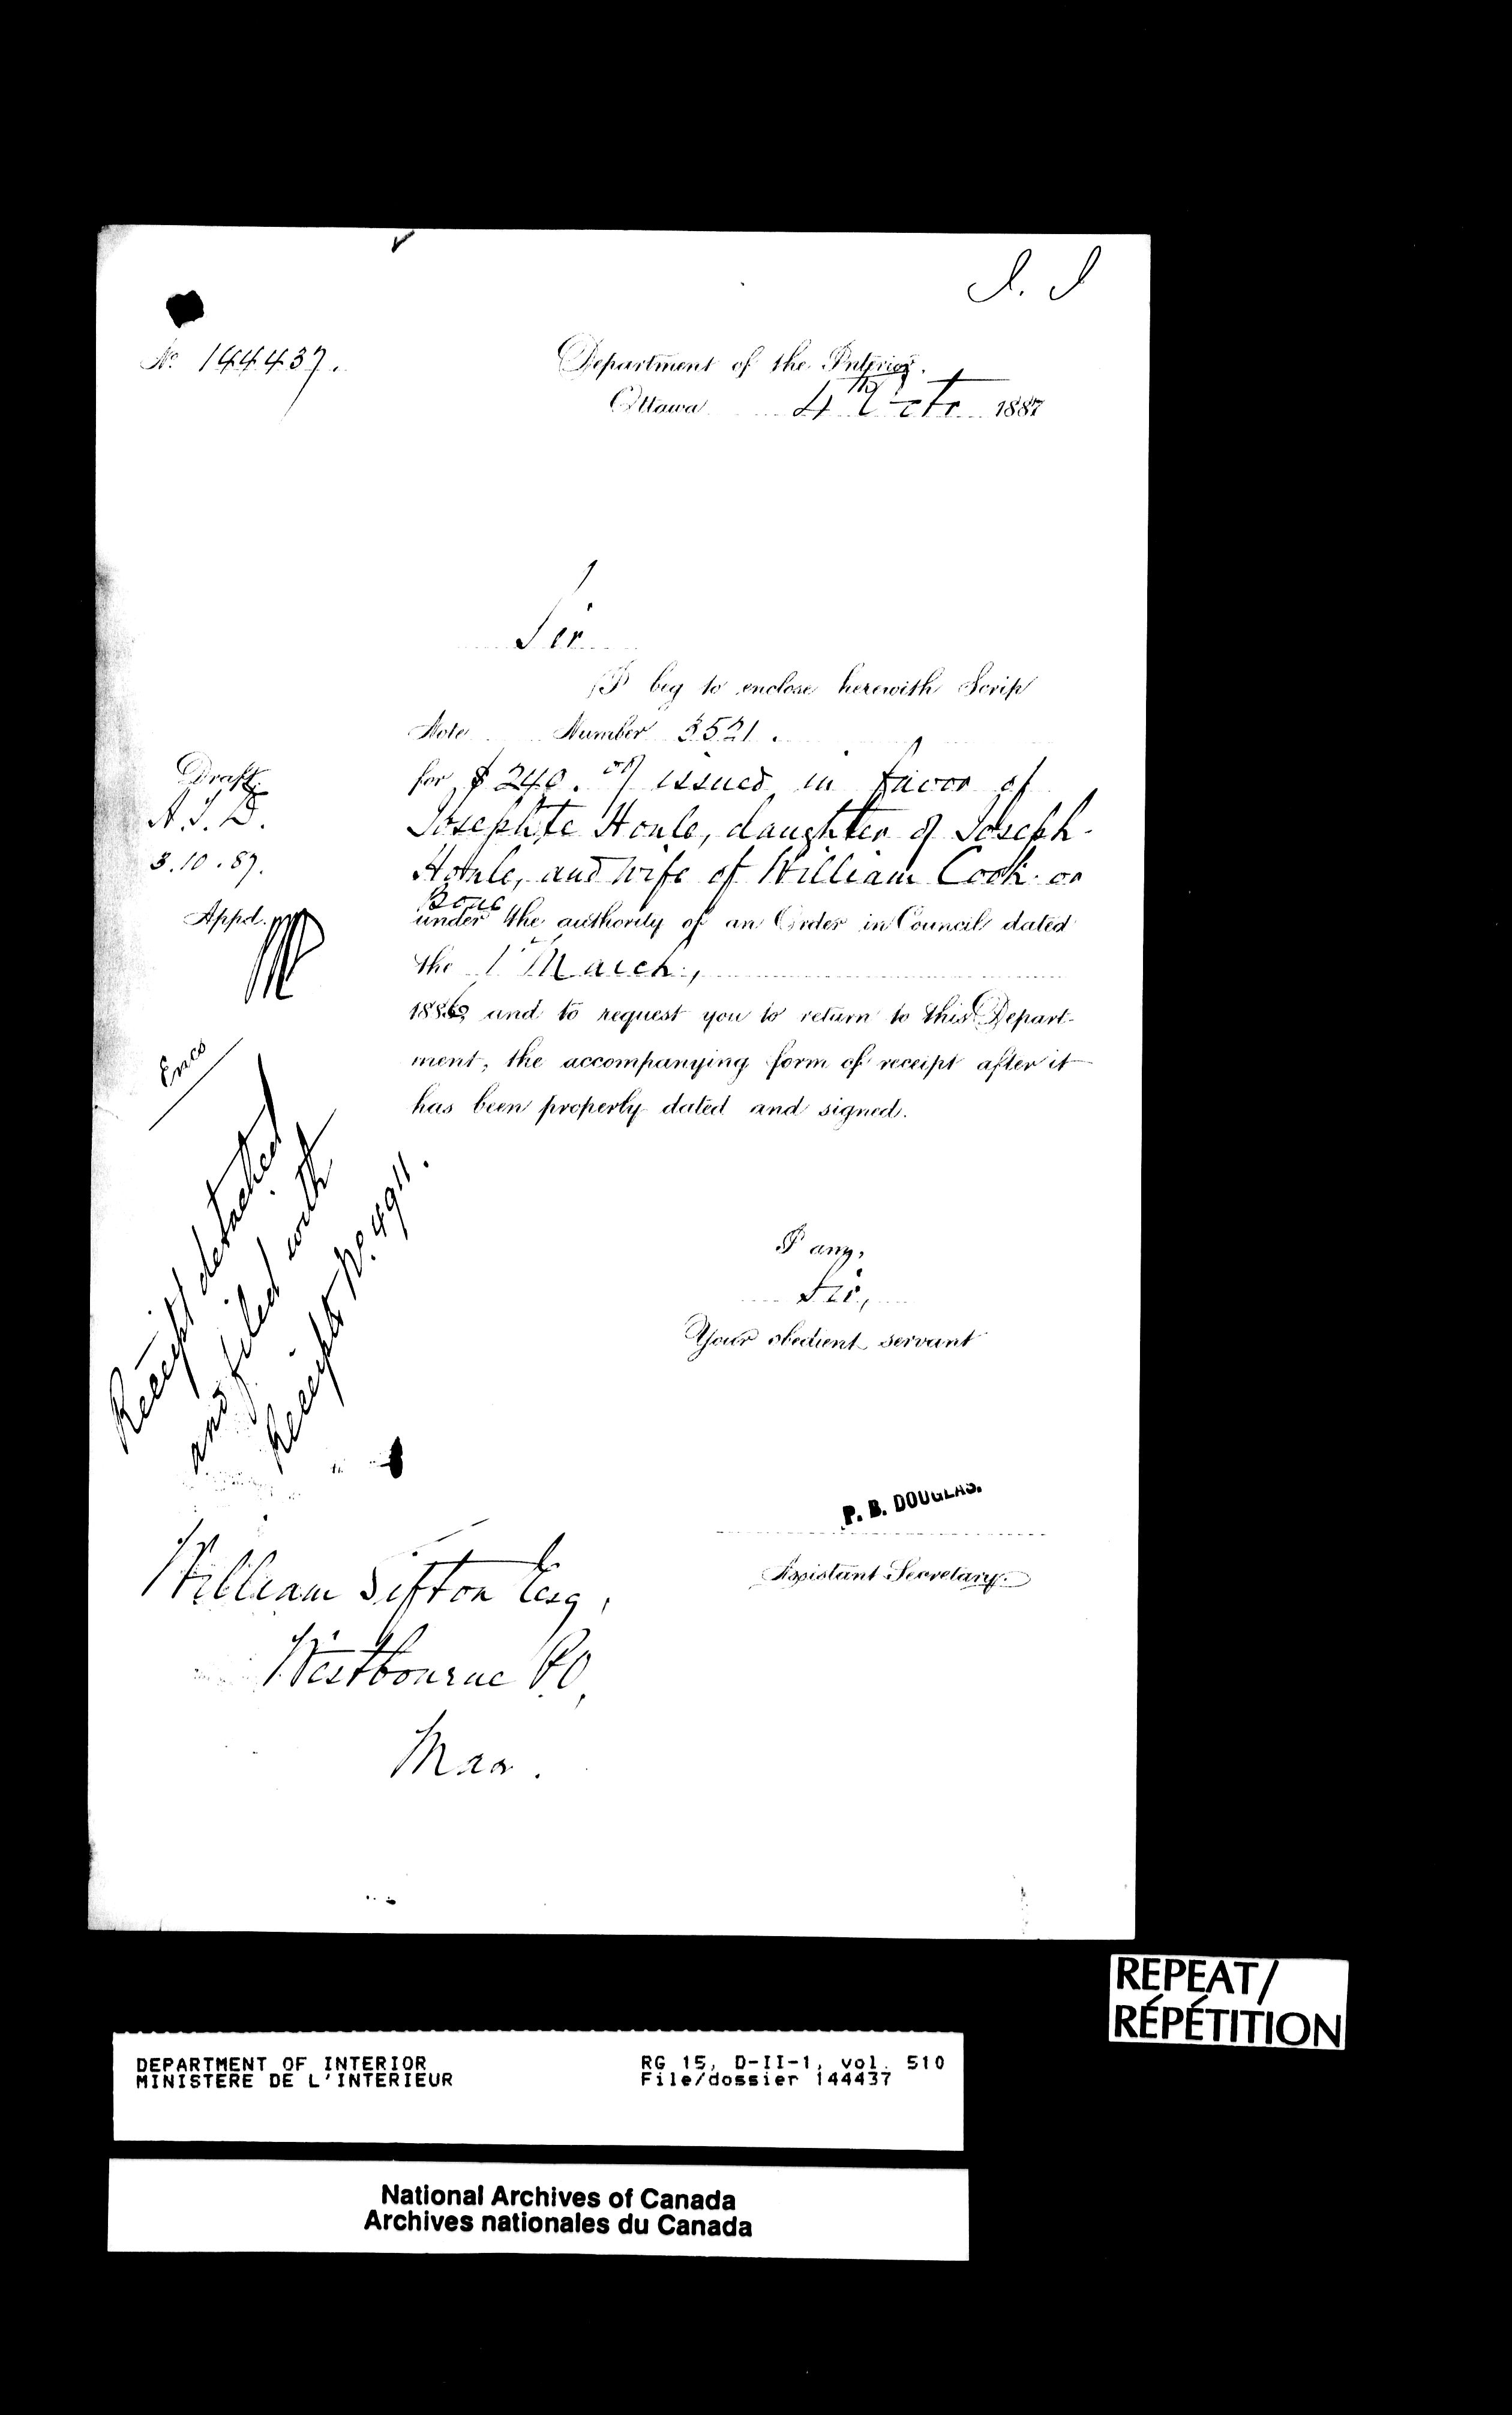 No. 144437.
Department of the Interior.
Ottawa 4th Oct. 1887
Sir
I beg to enclose herewith Scrip
Note Number 3521.
for $240.00 issued in favor of
Josephte Houle, daughter of Joseph
Houle, and wife of William Cook or
Bone
under the authority of an Order in Council dated
the 1st March,
1886, and to request you to return to this Depart-
ment, the accompanying form of receipt after it
has been properly dated and signed.
Draft.
3.10.87.
Appd.
Encs
Receipt detached
and filed with
Receipt No. 4911.
I am,
Sir,
Your obedient servant
P. B. DOUGLAS.
Assistant Secretary.
William Sifton Esq.,
Westbourne P.O,
Man.
REPEAT/
RÉPÉTITION
DEPARTMENT OF INTERIOR RG 15, D-II-1, vol. 510
MINISTERE DE L'INTERIEUR File/dossier 144437
National Archives of Canada
Archives nationales du Canada